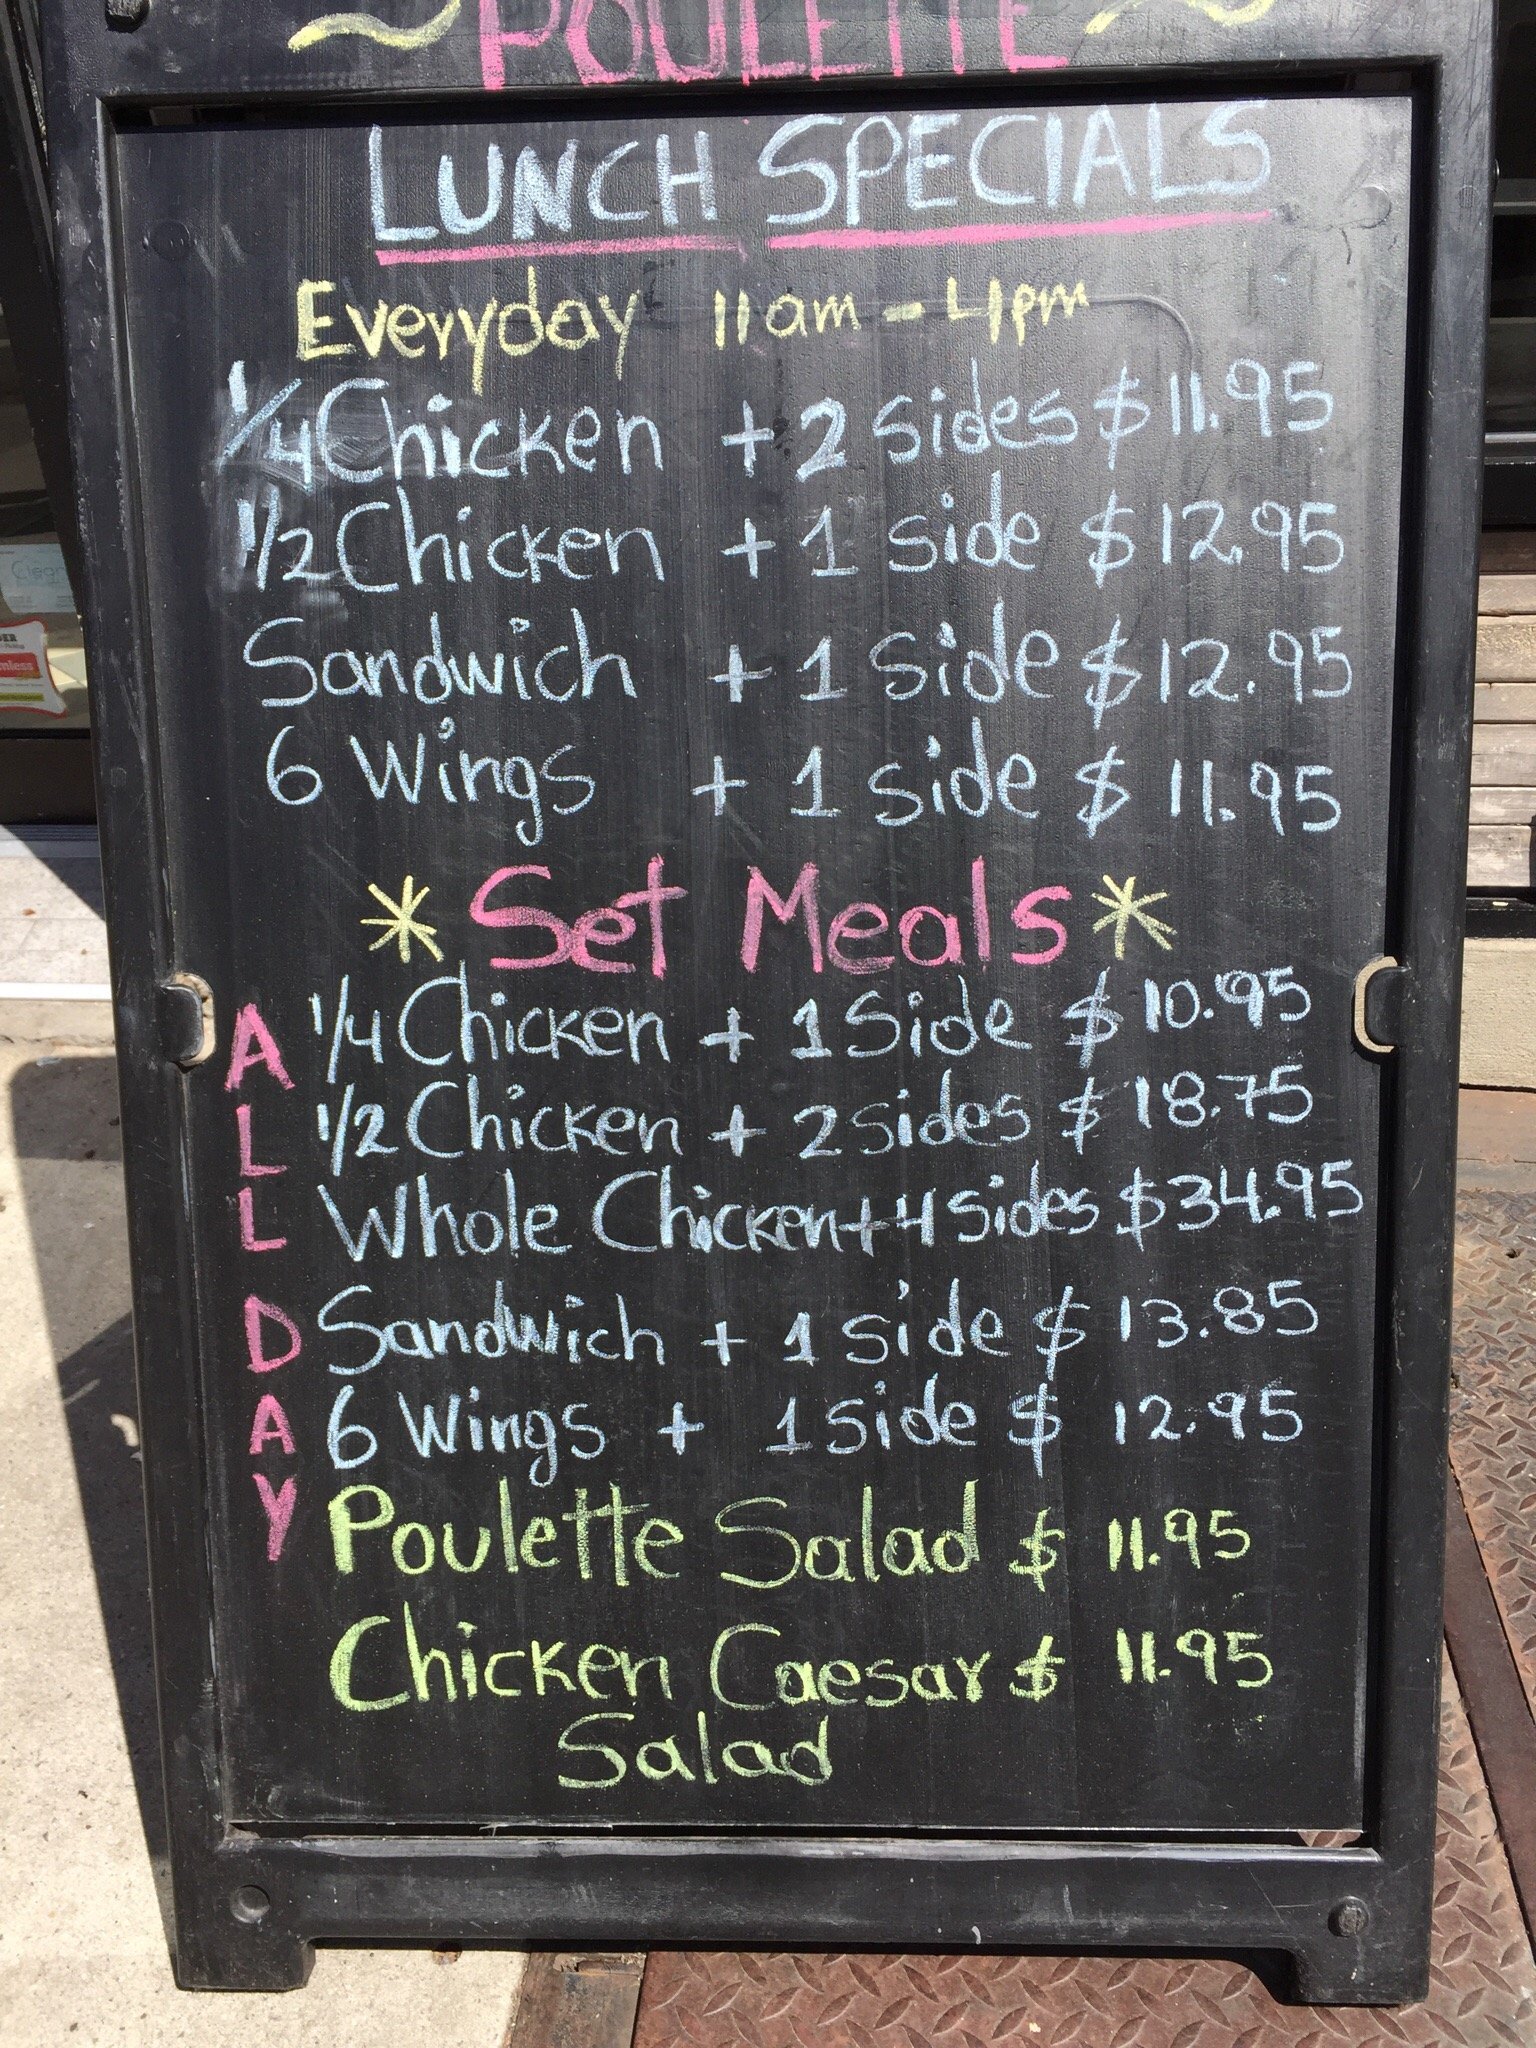 ~ POULETTE ~
LUNCH SPECIALS
Everyday 11am - 4pm
1/4 Chicken + 2 sides $11.95
1/2 Chicken + 1 side $12.95
Sandwich + 1 side $12.95
6 Wings + 1 side $11.95
* Set Meals *
ALL DAY
1/4 Chicken + 1 Side $10.95
1/2 Chicken + 2 sides $18.75
Whole Chicken + 4 sides $34.95
Sandwich + 1 side $13.85
6 Wings + 1 side $12.95
Poulette Salad $11.95
Chicken Caesar $11.95
Salad